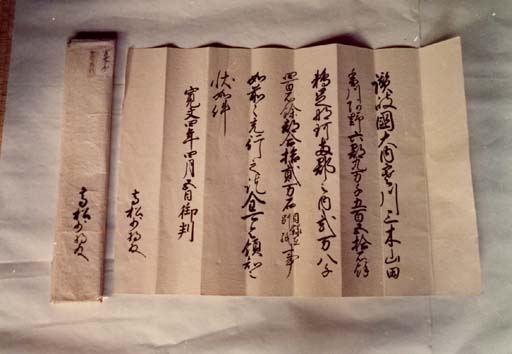 讃岐國大内寒川三木山田
香川阿野六郡九万千五百五拾石餘
鵜足那珂両郡之内貳万八千
四百石餘都合拾貳万石目録在別紙事
如前々充行之訖全可令領知之
状如件
寛文四年四月五日御判
高松少将殿
高松少将殿